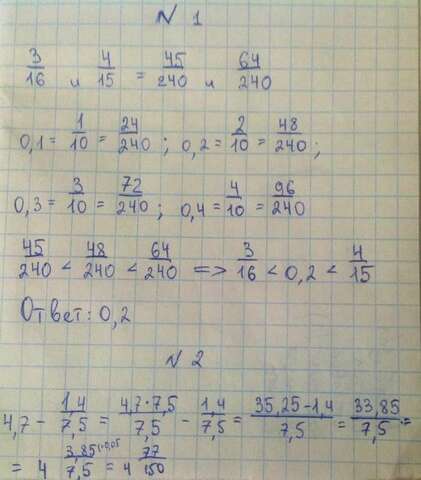 N 1
3/16 и 4/15 = 45/240 и 64/240
0,1 = 1/10 = 24/240 ; 0,2 = 2/10 = 48/240 ;
0,3 = 3/10 = 72/240 ; 0,4 = 4/10 = 96/240
45/240 < 48/240 < 64/240 => 3/16 < 0,2 < 4/15
Ответ: 0,2
N 2
4,7 - 1,4/7,5 = 4,7·7,5/7,5 - 1,4/7,5 = 35,25-1,4/7,5 = 33,85/7,5 =
= 4 3,85/7,5 = 4 77/150